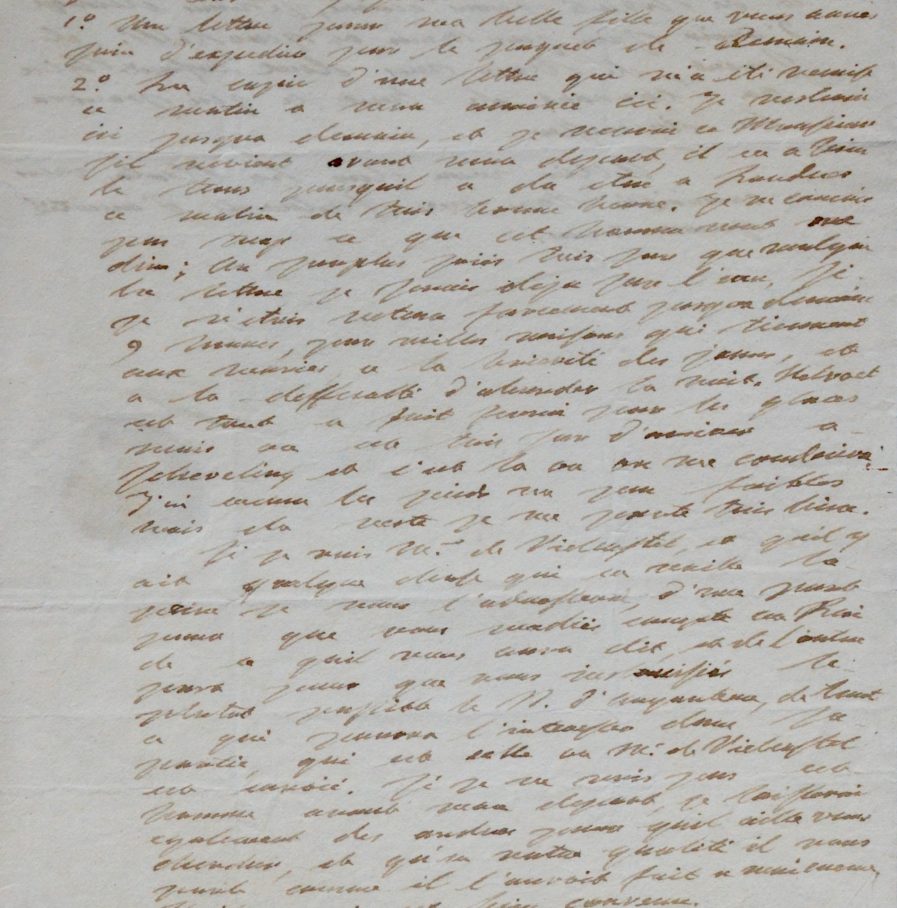 1.° Une lettre pour ma belle fille que vous aurez
soin d'expedier par le paquet de demain.
2.° La copie d'une lettre qui m'a été remise
ce matin a mon arrivée ici. Je resterai
ici jusqua demain, et je recevrai ce Monsieur
s'il revient avant mon depart, il en a bien
le tems puisquil a du etre a
ce matin de tres bonne heure. Je ne connais
pas trop ce que cet homme veut me
dire; au surplus puis que malgré
la lettre je serais deja sur l'eau, si
je n'etais retenu forcement jusqua demain
9 heures, pour milles raisons qui tiennent
aux marées, a la brieveté des jours, et
a la difficulté d'aborder la nuit. Helvoet
est tout a fait fermé par les glaces
mais on est tres sur d'arriver a
Scheveling et c'est la ou on me conduira.
J'ai encore les pieds un peu faibles
mais du reste je me porte tres bien.
Si je vois M.r de Vielcastel, et qu'il y
ait quelque chose qui en vaille la
peine je vous l'adresserai, d'une part
pour que vous rendiés compte au Roi
de ce quil vous aura dit, et de l'autre
part pour que vous instruisiés le
plutot possible le D. d'angouleme, de tout
ce qui pourra l'interesser dans sa
partie, qui est celle ou M. de Vielcastel
est envoié. Si je ne vois pas cet
homme avant mon depart, je laisserai
egalement des ordres pour quil aille vous
chercher, et qu'en votre qualité il vous
parle comme il l'auroit fait a moi meme
bien convenu.